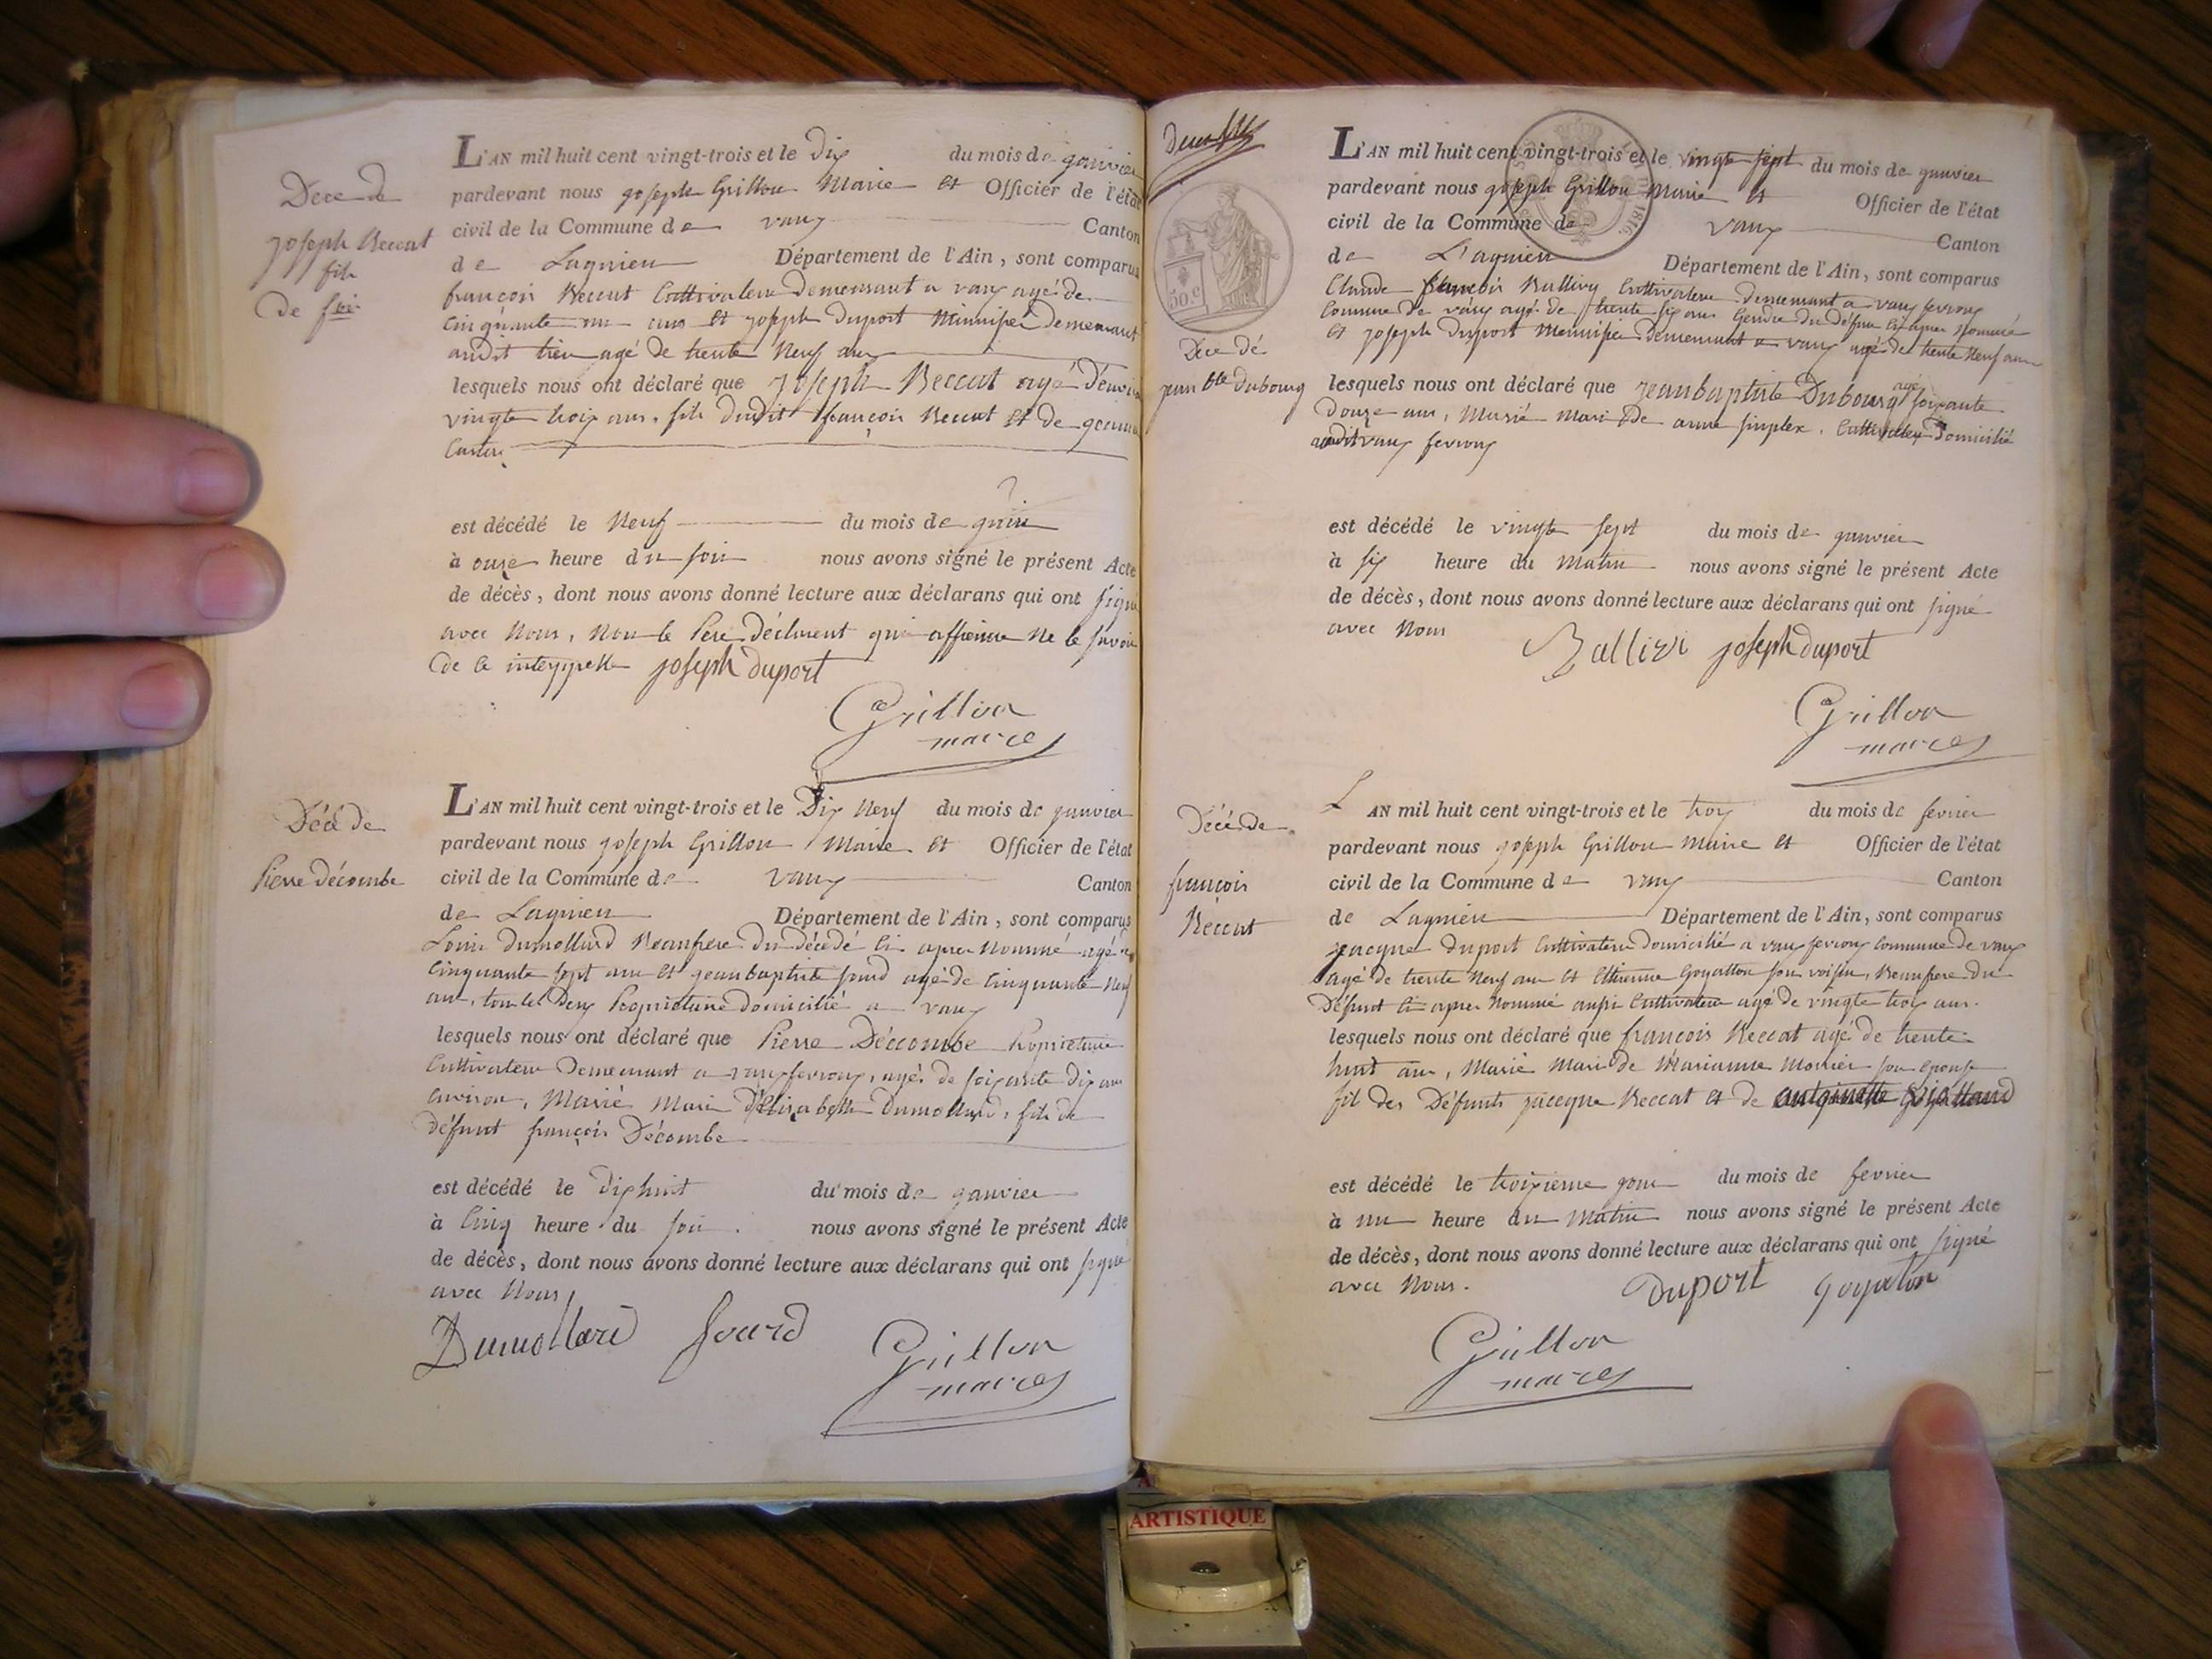 Décé de
Joseph Reccat
fils
de fcois
L'AN mil huit cent vingt-trois et le dix du mois de janvier
pardevant nous joseph Grillon Maire et Officier de l'état
civil de la Commune de vaux Canton
de Lagnieu Département de l'Ain, sont comparus
françois Reccat Cultivateur demeurant a vaux agé de
cinquante un ans et joseph duport Menuisier demeurant
audit lieu agé de trente Neuf ans
lesquels nous ont déclaré que Joseph Reccat agé d'environ
vingte trois ans, fils dudit françois Reccat et de
est décédé le Neuf du mois de
à onze heure du soir nous avons signé le présent Acte
de décès, dont nous avons donné lecture aux déclarans qui ont signé
avec Nous, Non le Pere déclarent qui affirme Ne le savoir
de ce interppellé joseph duport
Grillon
maire
Décé de
Pierre décombe
L'AN mil huit cent vingt-trois et le Dix Neuf du mois de janvier
pardevant nous joseph Grillon Maire et Officier de l'état
civil de la Commune de vaux Canton
de Lagnieu Département de l'Ain, sont comparus
Louis dumollard Beaufrere du décédé ci apres Nommé agé de
cinquante sept ans et jeanbaptiste jourd agé de cinquante Neuf
ans, tout les deux Propriétaire domicilié a vaux
lesquels nous ont déclaré que Pierre Déccombe Propriétaire
Cultivateur demeurant a vaux fevroux, agé de soixante dix ans
environ, Marié Mari d'Elizabeth Dumollard, fils de
défunt françois Décombe
est décédé le dixhuit du mois de janvier
à Cinq heure du soir. nous avons signé le présent Acte
de décès, dont nous avons donné lecture aux déclarans qui ont signé
avec Nous,
Dumollard Jourd Grillon
maire
Décé dé
jean bte dubourg
50.c
1816.
L'AN mil huit cent vingt-trois et le vingte sept du mois de janvier
pardevant nous joseph Grillon Maire et Officier de l'état
civil de la Commune de vaux Canton
de L'agnieu Département de l'Ain, sont comparus
Claude françois Ballivy Cultivateur demeurant a vaux fevroux
Commune de vaux agé de trente six ans Gendre du défun ci apres Nommé
et joseph duport Menuisier demeurant a vaux agé de trente Neuf ans
lesquels nous ont déclaré que jeanbaptiste Dubourg agé soixante
douze ans, Marié Mari de anne simplex, Cultivateur domicilié
audit vaux fevroux
est décédé le vingte sept du mois de janvier
à six heure du Matin nous avons signé le présent Acte
de décès, dont nous avons donné lecture aux déclarans qui ont signé
avec Nous Ballivi joseph duport
Grillon
maire
Décé de
françois
Réccat
L'AN mil huit cent vingt-trois et le troix du mois de fevrier
pardevant nous joseph Grillon Maire et Officier de l'état
civil de la Commune de vaux Canton
de Lagnieu Département de l'Ain, sont comparus
jacque duport Cultivateur domicilié a vaux fevroux Commune de vaux
agé de trente Neuf ans et Ettienne Goyatton son voisin, Beaufrere du
défunt ci apres Nommé aussi Cultivateur agé de vingte trois ans.
lesquels nous ont déclaré que françois Reccat agé de trente
huit ans, Marié Mari de Marianne Monier son epouse
fil des Défunts jacque Reccat et de antoinette
est décédé le troixieme jour du mois de fevrier
à un heure du Matin nous avons signé le présent Acte
de décès, dont nous avons donné lecture aux déclarans qui ont signé
avec Nous. Duport goyaton
Grillon
maire
ARTISTIQUE